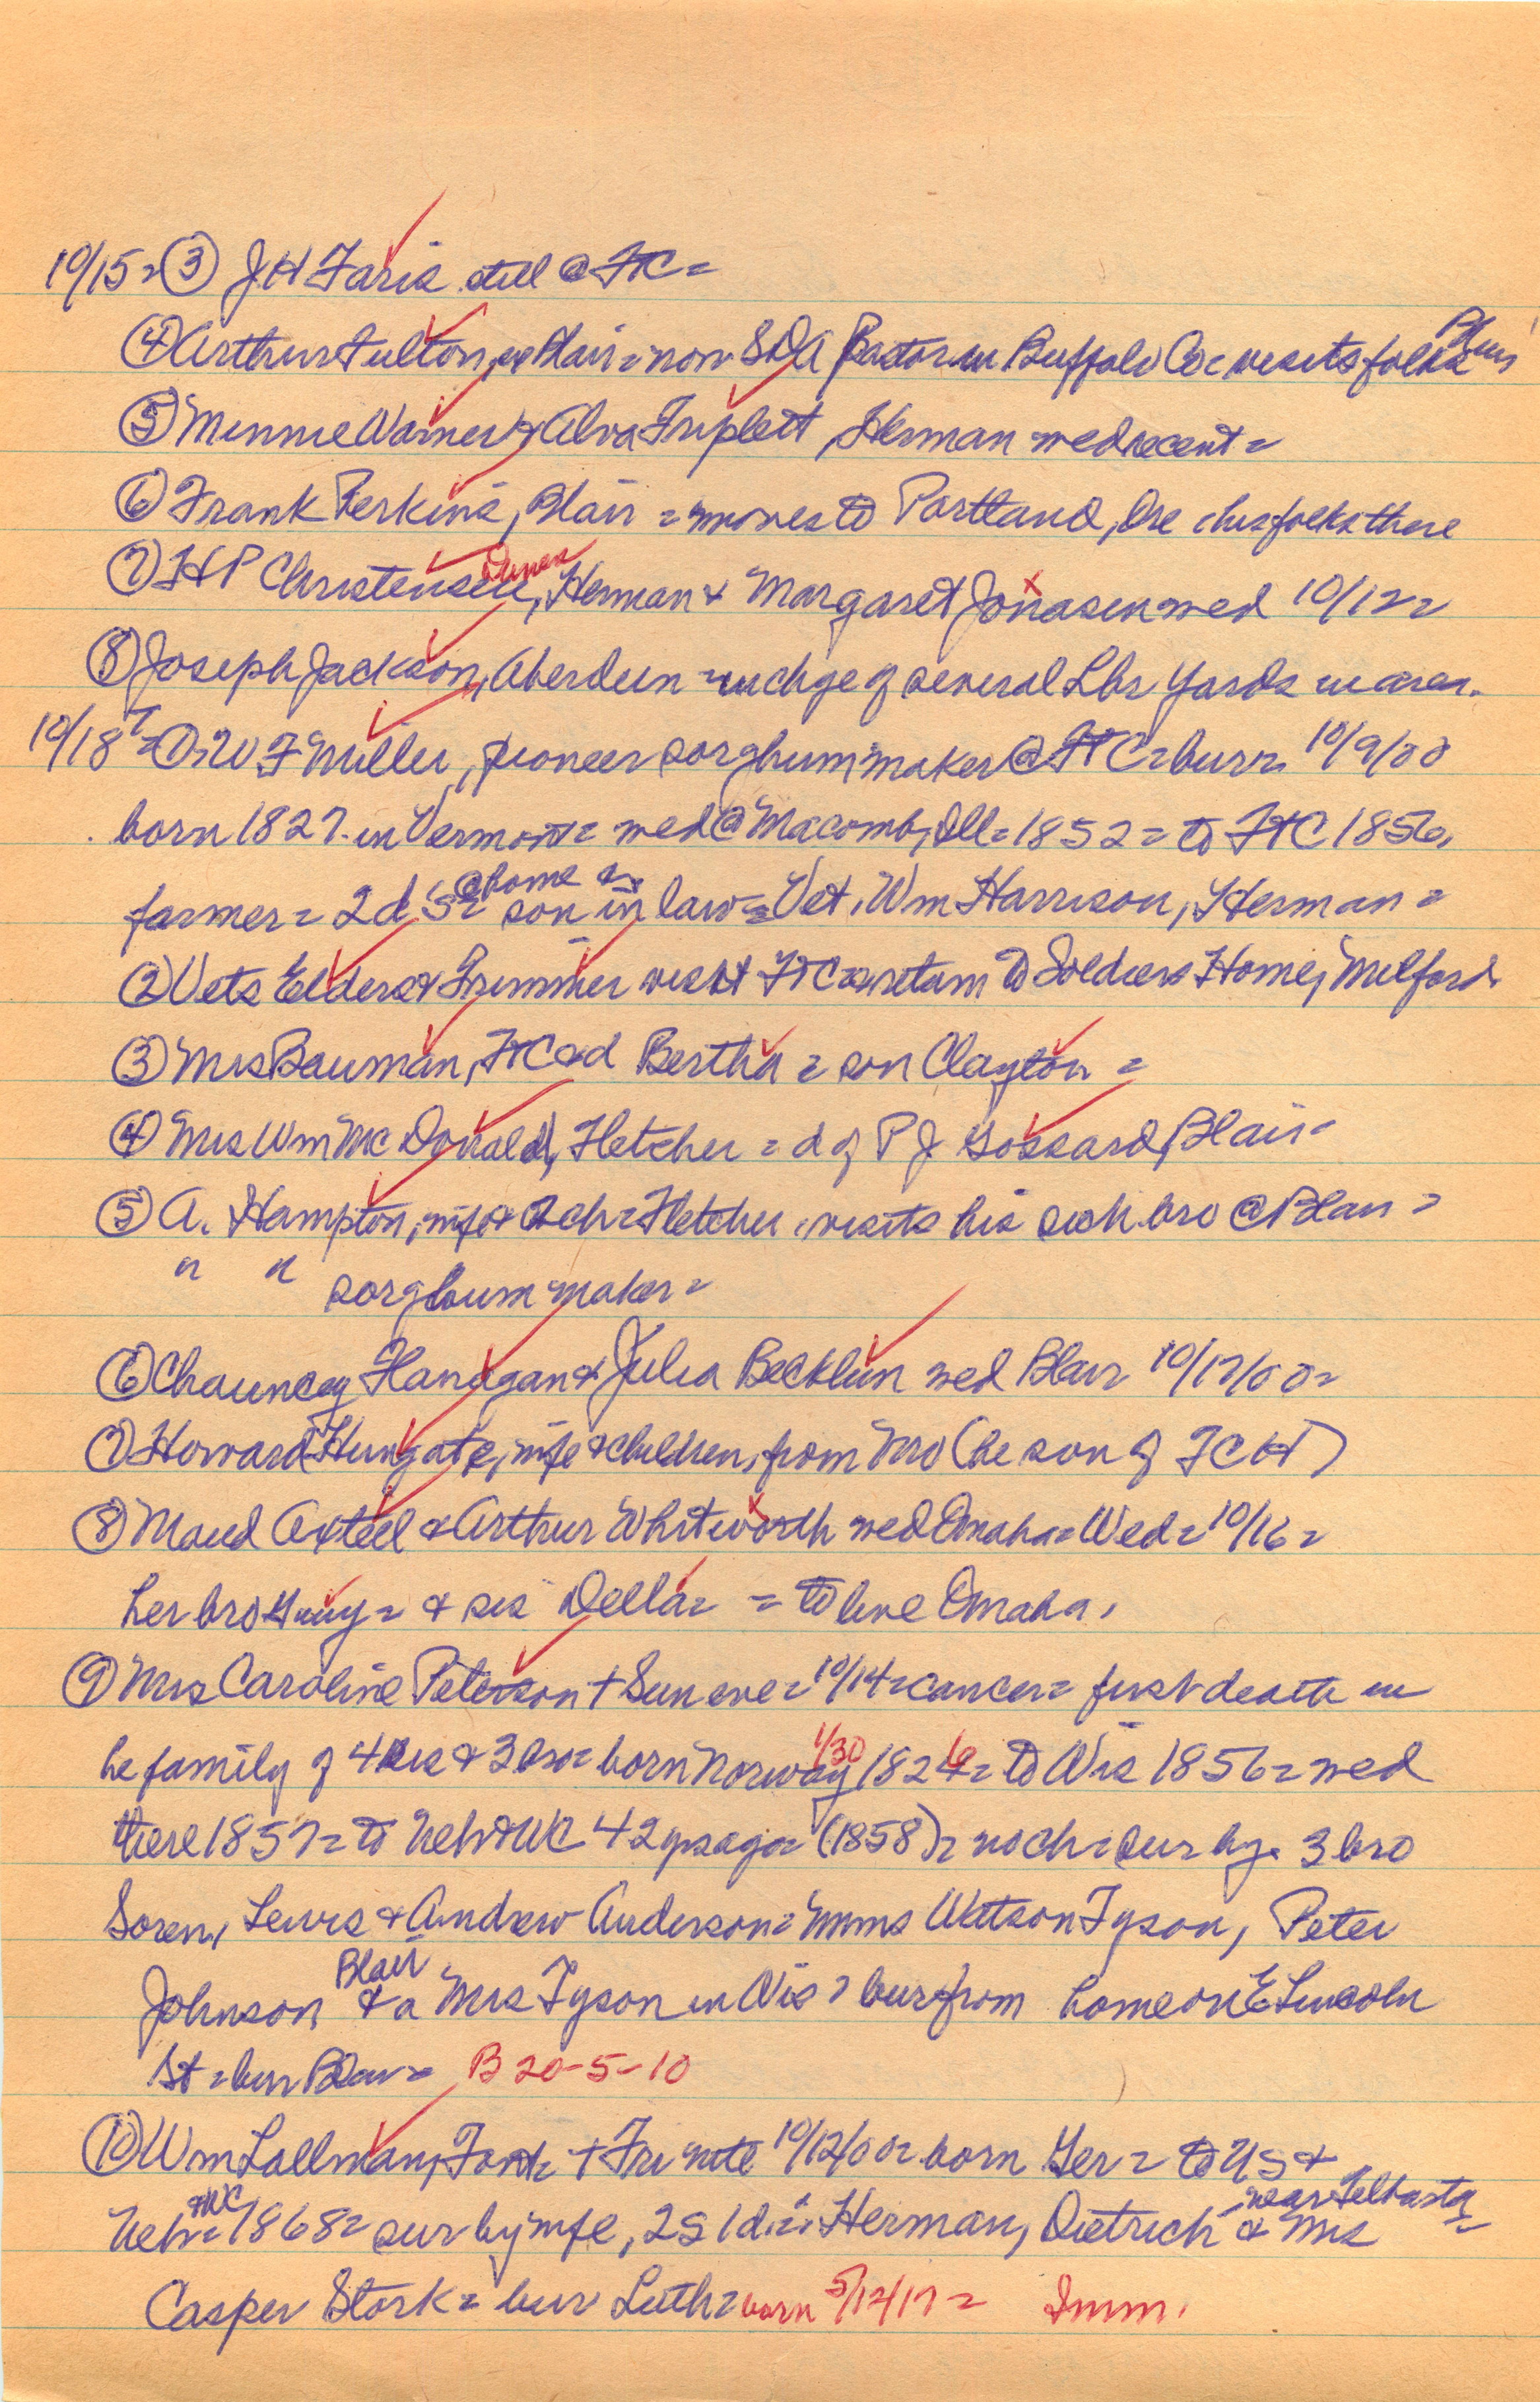 10/15 = ③ J H Faris still @ FTC =
④ Arthur Fulton, ex Blair = now SDA Pastor in Buffalo Co = visits folks Blair
⑤ Minnie Warner & Alva Triplett, Herman wed recent =
⑥ Frank Perkins, Blair = moves to Portland, Ore his folks there
⑦ H P Christensen, Herman & Margaret Jonasen wed 10/12 =
⑧ Joseph Jackson, Aberdeen = in chge of several Lbr Yards in area.
10/18 = ① = W F Miller, pioneer sorghum maker @ FTC = bur = 10/9/00
born 1827 in Vermont = wed @ Macomb, Ill = 1852 = to FTC 1856,
farmer = 2 d 5 s = @ home son in law = Vet, Wm Harrison, Herman =
② Vets Elders & Frimmer visit FTC = return to Soldiers Home, Milford
③ Mrs Bauman, FTC = d Bertha = son Clayton =
④ Mrs Wm McDonald, Fletcher = d of P J Gossard, Blair =
⑤ A. Hampton, wife & 2 ch = Fletcher, visits his sick bro @ Blair =
" " sorghum maker =
⑥ Chauncey Hanagan & Julia Becklun wed Blair 10/17/00 =
⑦ Howard Hungate, wife & children, from Mo (he son of J C H)
⑧ Maud Axtell & Arthur Whitworth wed Omaha = Wed = 10/16 =
her bro Guy = & sis Della = = to live Omaha,
⑨ Mrs Caroline Peterson + Sun eve = 10/14 = cancer = first death in
he family of 4 sis & 3 bro = born Norway 1/30 1824 6 = to Wis 1856 = wed
there 1857 = to Neb & WC 42 yrs ago = (1858) = no ch = sur by = 3 bro
Soren, Lewis & Andrew Anderson = Mmes Watson Tyson, Peter
Johnson Blair & a Mrs Tyson in Wis = bur from home on E Lincoln
St = bur Blair = B 20-5-10
⑩ Wm Lallman, Font = + Fri nite 10/12/00 = born Ger = to US &
Neb & WC = 1868 = sur by wife, 2 s 1 d = Herman, Dietrich near Telbasta & Mrs
Casper Stork = bur Luth = born 5/12/17 = Imm.